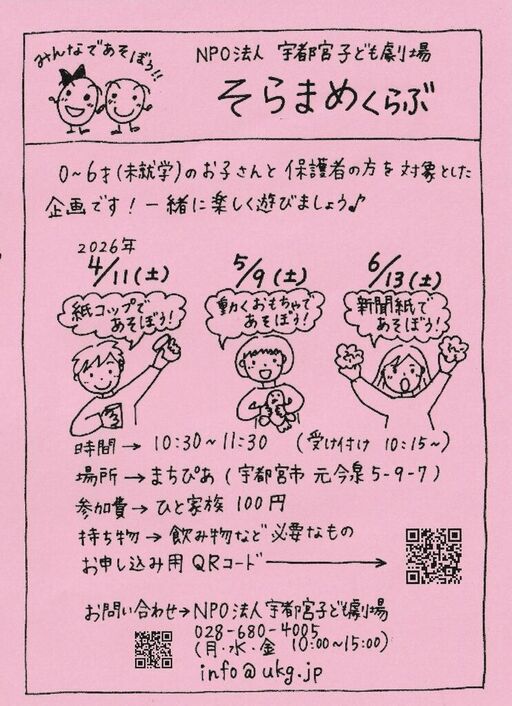 みんなであそぼう!!
NPO法人 宇都宮子ども劇場
そらまめくらぶ
0~6才(未就学)のお子さんと保護者の方を対象とした
企画です!一緒に楽しく遊びましょう♪
2026年
4/11(土)
5/9(土)
6/13(土)
紙コップで
あそぼう!
動くおもちゃで
あそぼう!
新聞紙で
あそぼう!
時間→10:30~11:30 (受け付け 10:15~)
場所→まちぴあ(宇都宮市 元今泉5-9-7)
参加費→ひと家族100円
持ち物→飲み物など必要なもの
お申し込み用QRコード→
お問い合わせ→NPO法人宇都宮子ども劇場
028-680-4005
(月・水・金 10:00~15:00)
info@ukg.jp